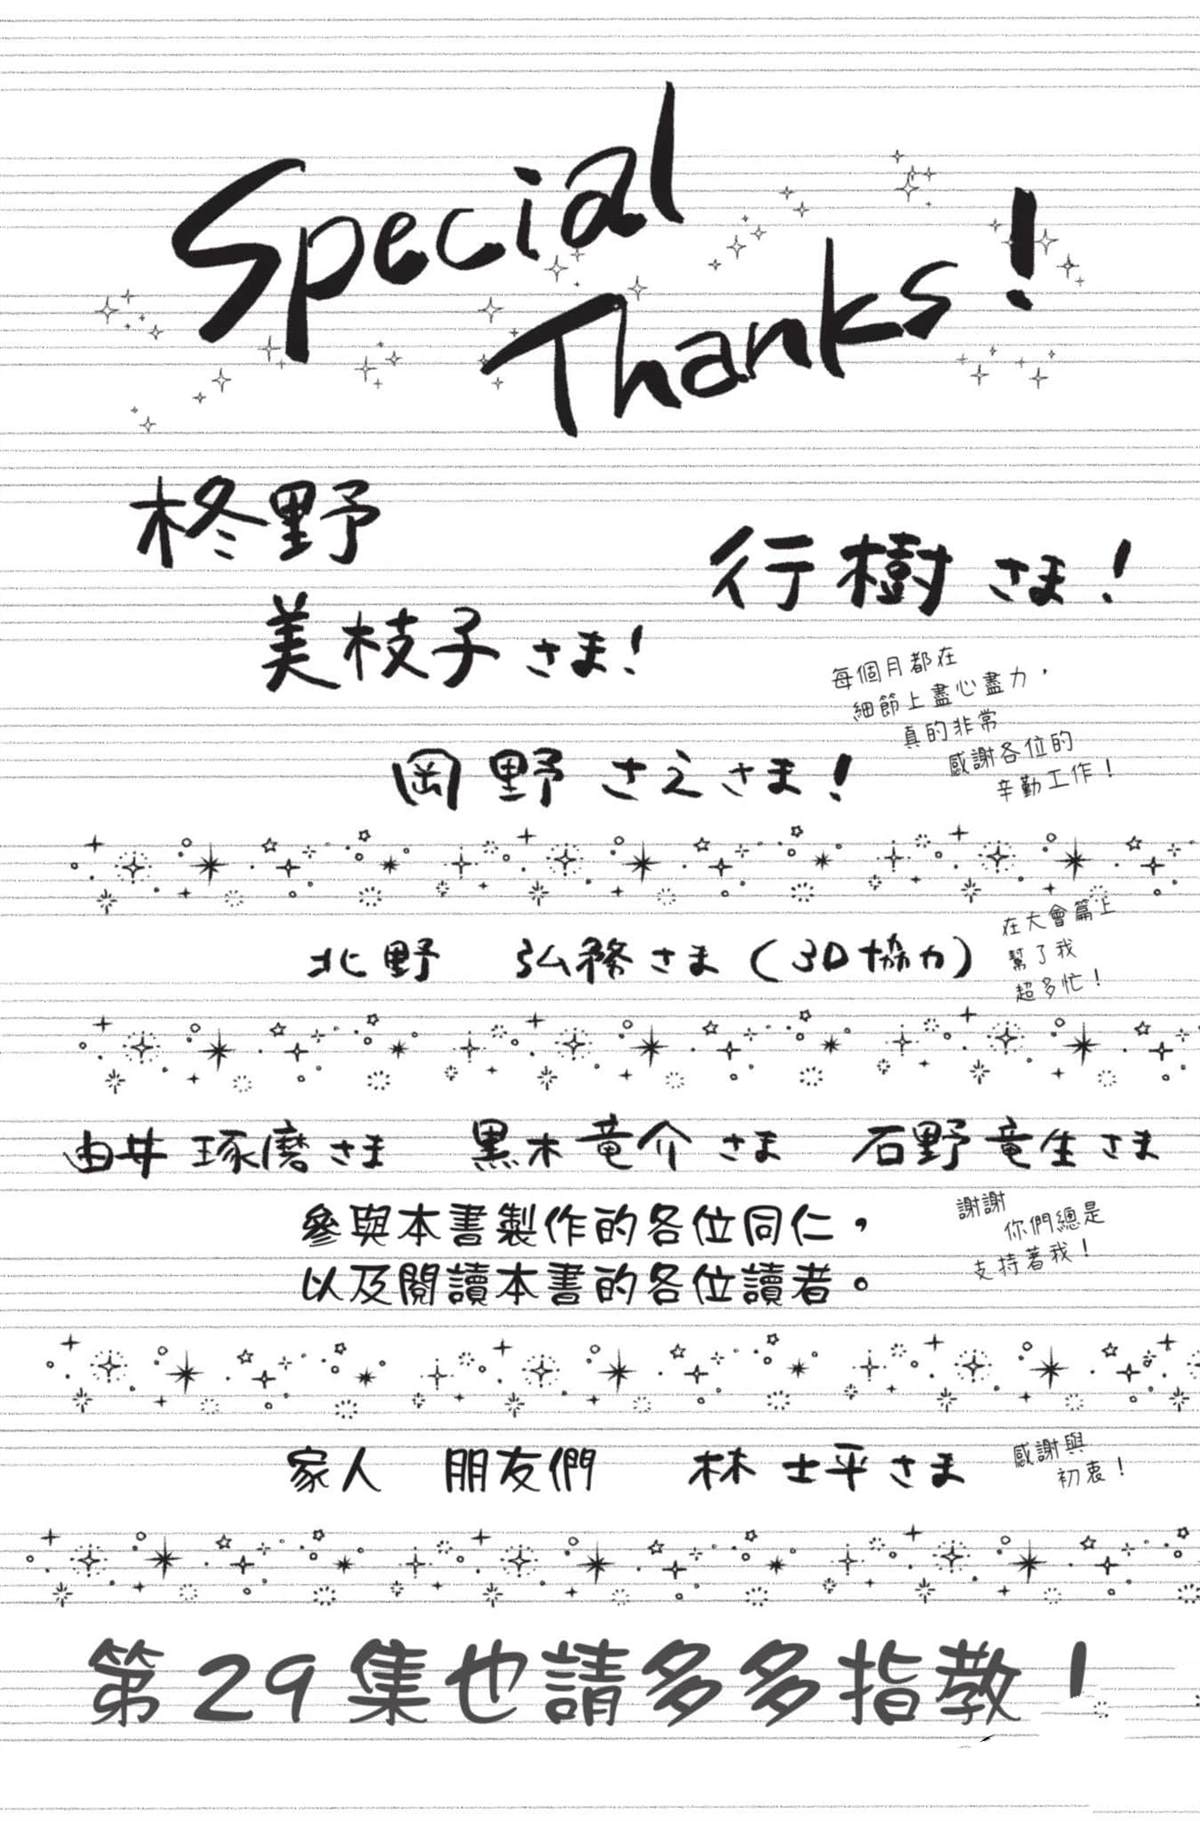 Special
Thanks!
柊野
美枝子さま!
行樹さま!
每個月都在
細節上盡心盡力，
真的非常
感謝各位的
辛勤工作！
岡野さえさま!
北野　弘務さま（3D協力）
在大會篇上
幫了我
超多忙！
由井琢磨さま　黒木竜介さま　石野竜生さま
參與本書製作的各位同仁，
以及閱讀本書的各位讀者。
謝謝
你們總是
支持著我！
家人　朋友們　林士平さま
感謝與
初衷！
第29集也請多多指教！